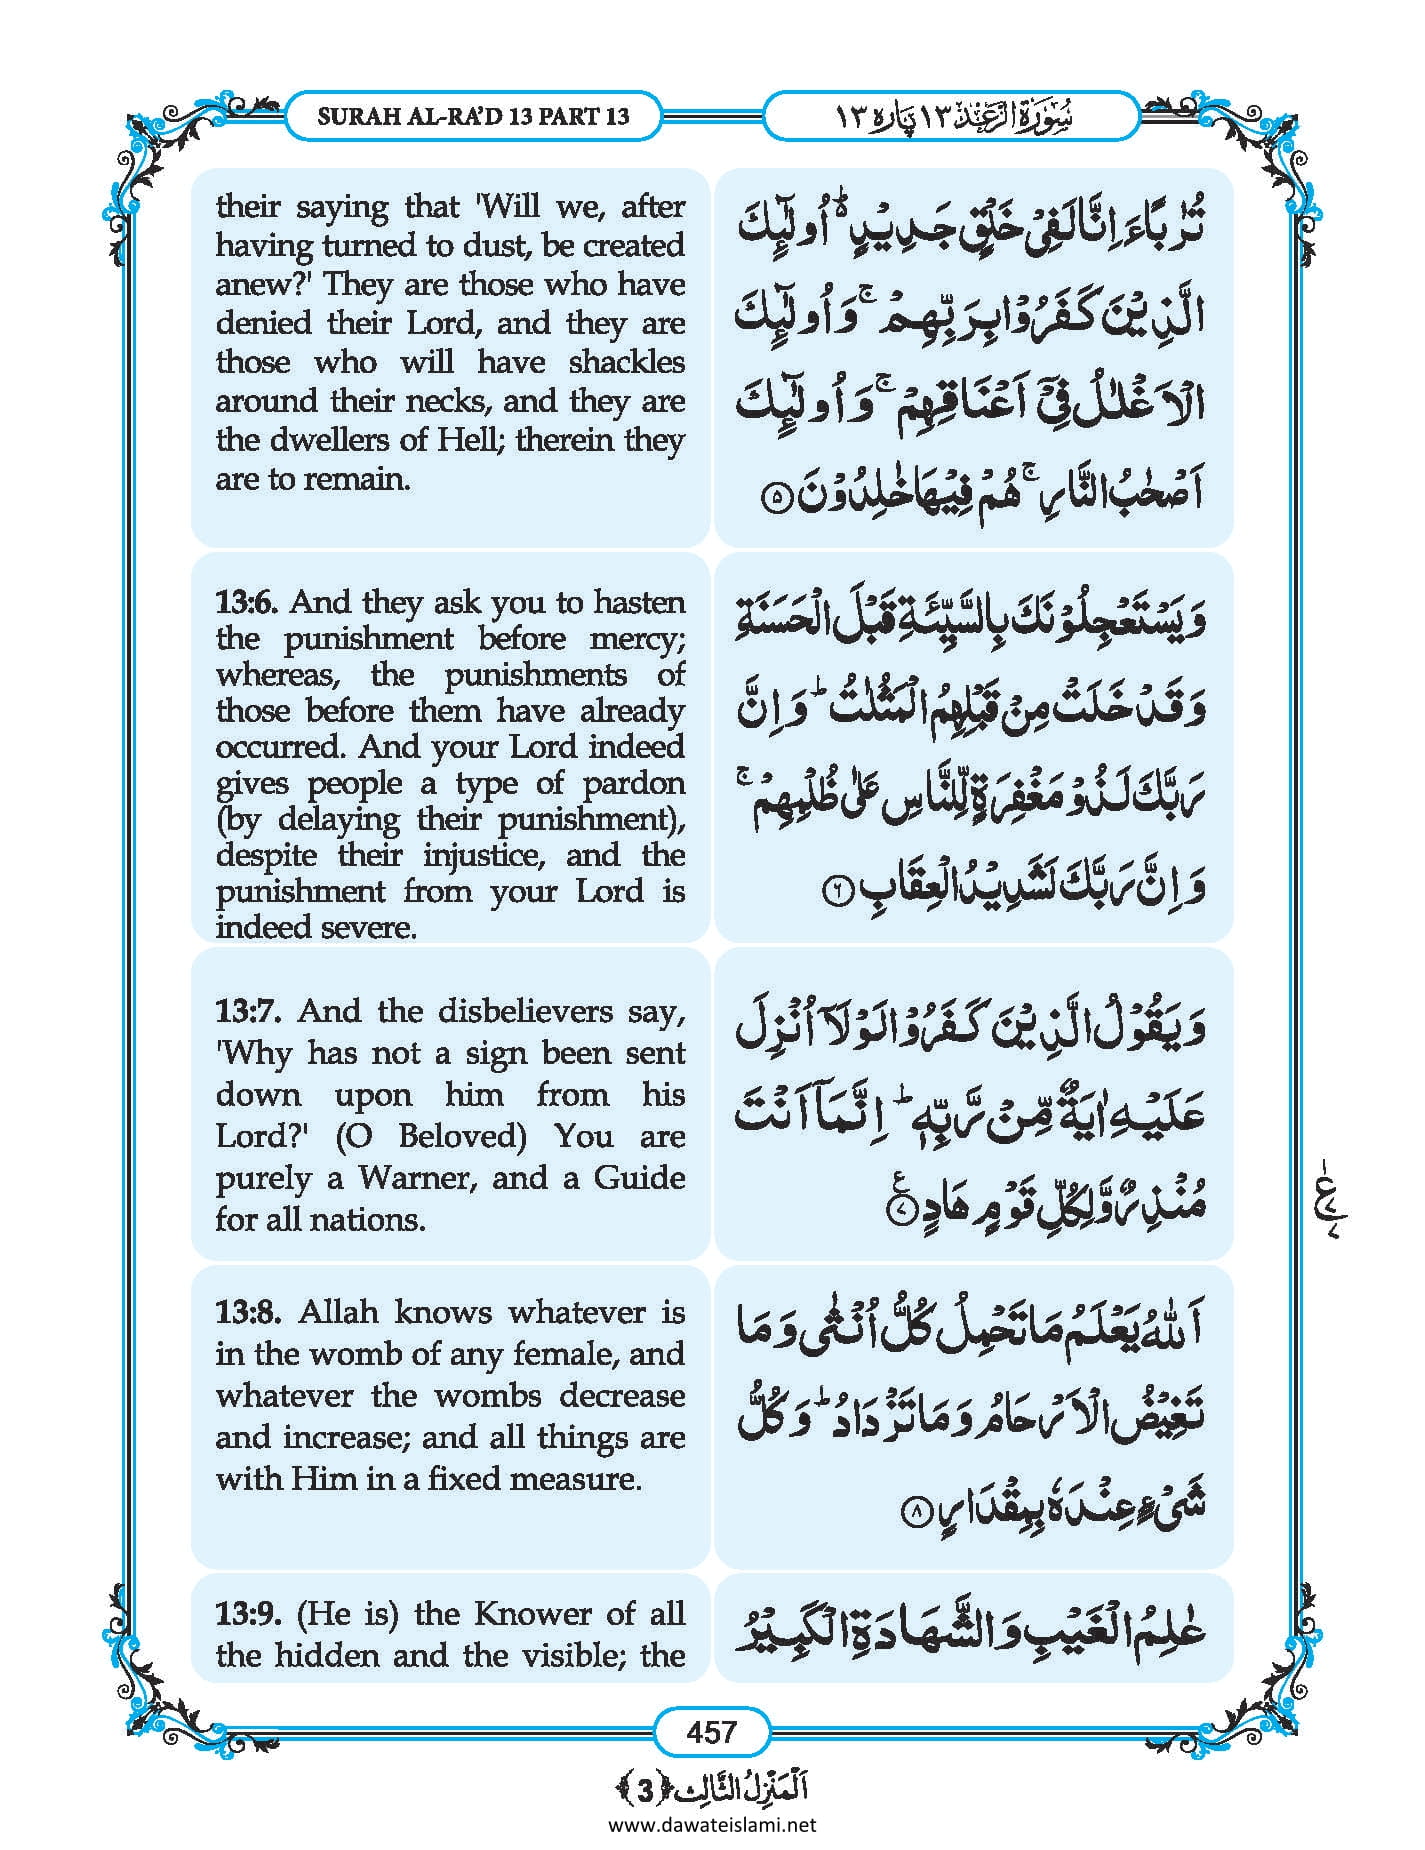 SURAH AL-RA’D 13 PART 13
سُوۡرَۃُ الرَّعۡد ١٣ پَاره ١٣
their saying that 'Will we, after
having turned to dust, be created
anew?' They are those who have
denied their Lord, and they are
those who will have shackles
around their necks, and they are
the dwellers of Hell; therein they
are to remain.
تُرٰبًاءَاِنَّالَفِیۡ خَلۡقٍ جَدِیۡدٍ ۬ؕ اُولٰٓئِکَ
الَّذِیۡنَ کَفَرُوۡابِرَبِّہِمۡ ۚ وَاُولٰٓئِکَ
الۡاَغۡلٰلُ فِیۡۤ اَعۡنَاقِہِمۡ ۚ وَاُولٰٓئِکَ
اَصۡحٰبُ النَّارِ ۚ ہُمۡ فِیۡہَاخٰلِدُوۡنَ ﴿۵﴾
13:6. And they ask you to hasten
the punishment before mercy;
whereas, the punishments of
those before them have already
occurred. And your Lord indeed
gives people a type of pardon
(by delaying their punishment),
despite their injustice, and the
punishment from your Lord is
indeed severe.
وَیَسۡتَعۡجِلُوۡنَکَ بِالسَّیِّئَۃِ قَبۡلَ الۡحَسَنَۃِ
وَقَدۡ خَلَتۡ مِنۡ قَبۡلِہِمُ الۡمَثُلٰتُ ؕ وَاِنَّ
رَبَّکَ لَذُوۡ مَغۡفِرَۃٍ لِّلنَّاسِ عَلٰی ظُلۡمِہِمۡ ۚ
وَاِنَّ رَبَّکَ لَشَدِیۡدُ الۡعِقَابِ ﴿۶﴾
13:7. And the disbelievers say,
'Why has not a sign been sent
down upon him from his
Lord?' (O Beloved) You are
purely a Warner, and a Guide
for all nations.
وَیَقُوۡلُ الَّذِیۡنَ کَفَرُوۡا لَوۡلَاۤ اُنۡزِلَ
عَلَیۡہِ اٰیَۃٌ مِّنۡ رَّبِّہٖ ؕ اِنَّمَاۤ اَنۡتَ
مُنۡذِرٌ وَّلِکُلِّ قَوۡمٍ ہَادٍ ﴿۷﴾ ع
13:8. Allah knows whatever is
in the womb of any female, and
whatever the wombs decrease
and increase; and all things are
with Him in a fixed measure.
اَللہُ یَعۡلَمُ مَا تَحۡمِلُ کُلُّ اُنۡثٰی وَمَا
تَغِیۡضُ الۡاَرۡحَامُ وَمَا تَزۡدَادُ ؕ وَکُلُّ
شَیۡءٍ عِنۡدَہٗ بِمِقۡدَارٍ ﴿۸﴾
13:9. (He is) the Knower of all
the hidden and the visible; the
عٰلِمُ الۡغَیۡبِ وَالشَّہَادَۃِ الۡکَبِیۡرُ
457
اَلۡمَنۡزِلُ الثَّالِث ﴿3﴾
www.dawateislami.net